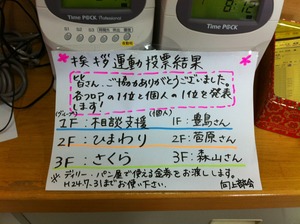 Time P@CK Professional
Time P@CK
8:12
挨拶運動投票結果
皆さん、ご協力ありがとうございました。
各フロアの1位と個人の1位を発表
します!
(グループ) (個人)
1F:相談支援 1F:豊島さん
2F:ひまわり 2F:菅原さん
3F:さくら 3F:森山さん
※デイリー・パン屋で使える金券をお渡しします。
H24.7.31までお使い下さい。
向上部会